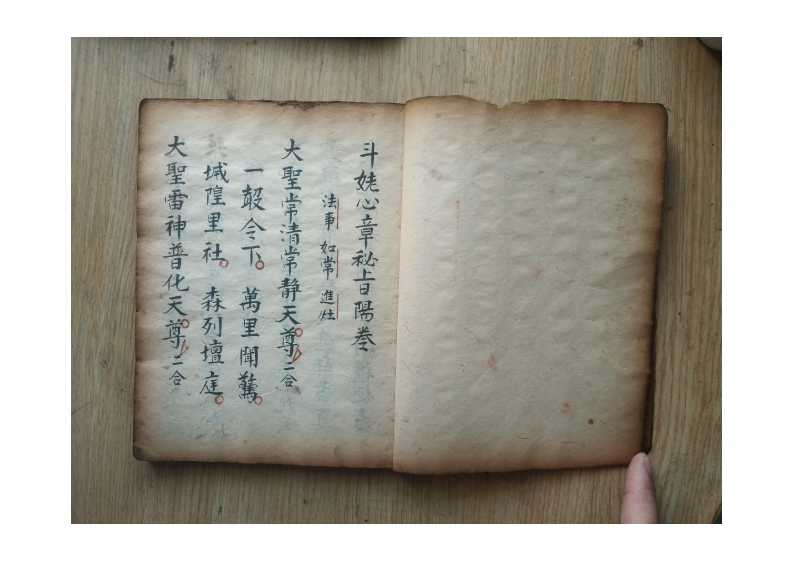 斗姥心章秘旨陽卷
法事 如常 進壇
大聖常清常靜天尊 二合
一鼓令下 萬里聞驚
城隍里社 森列壇庭
大聖雷神普化天尊 二合